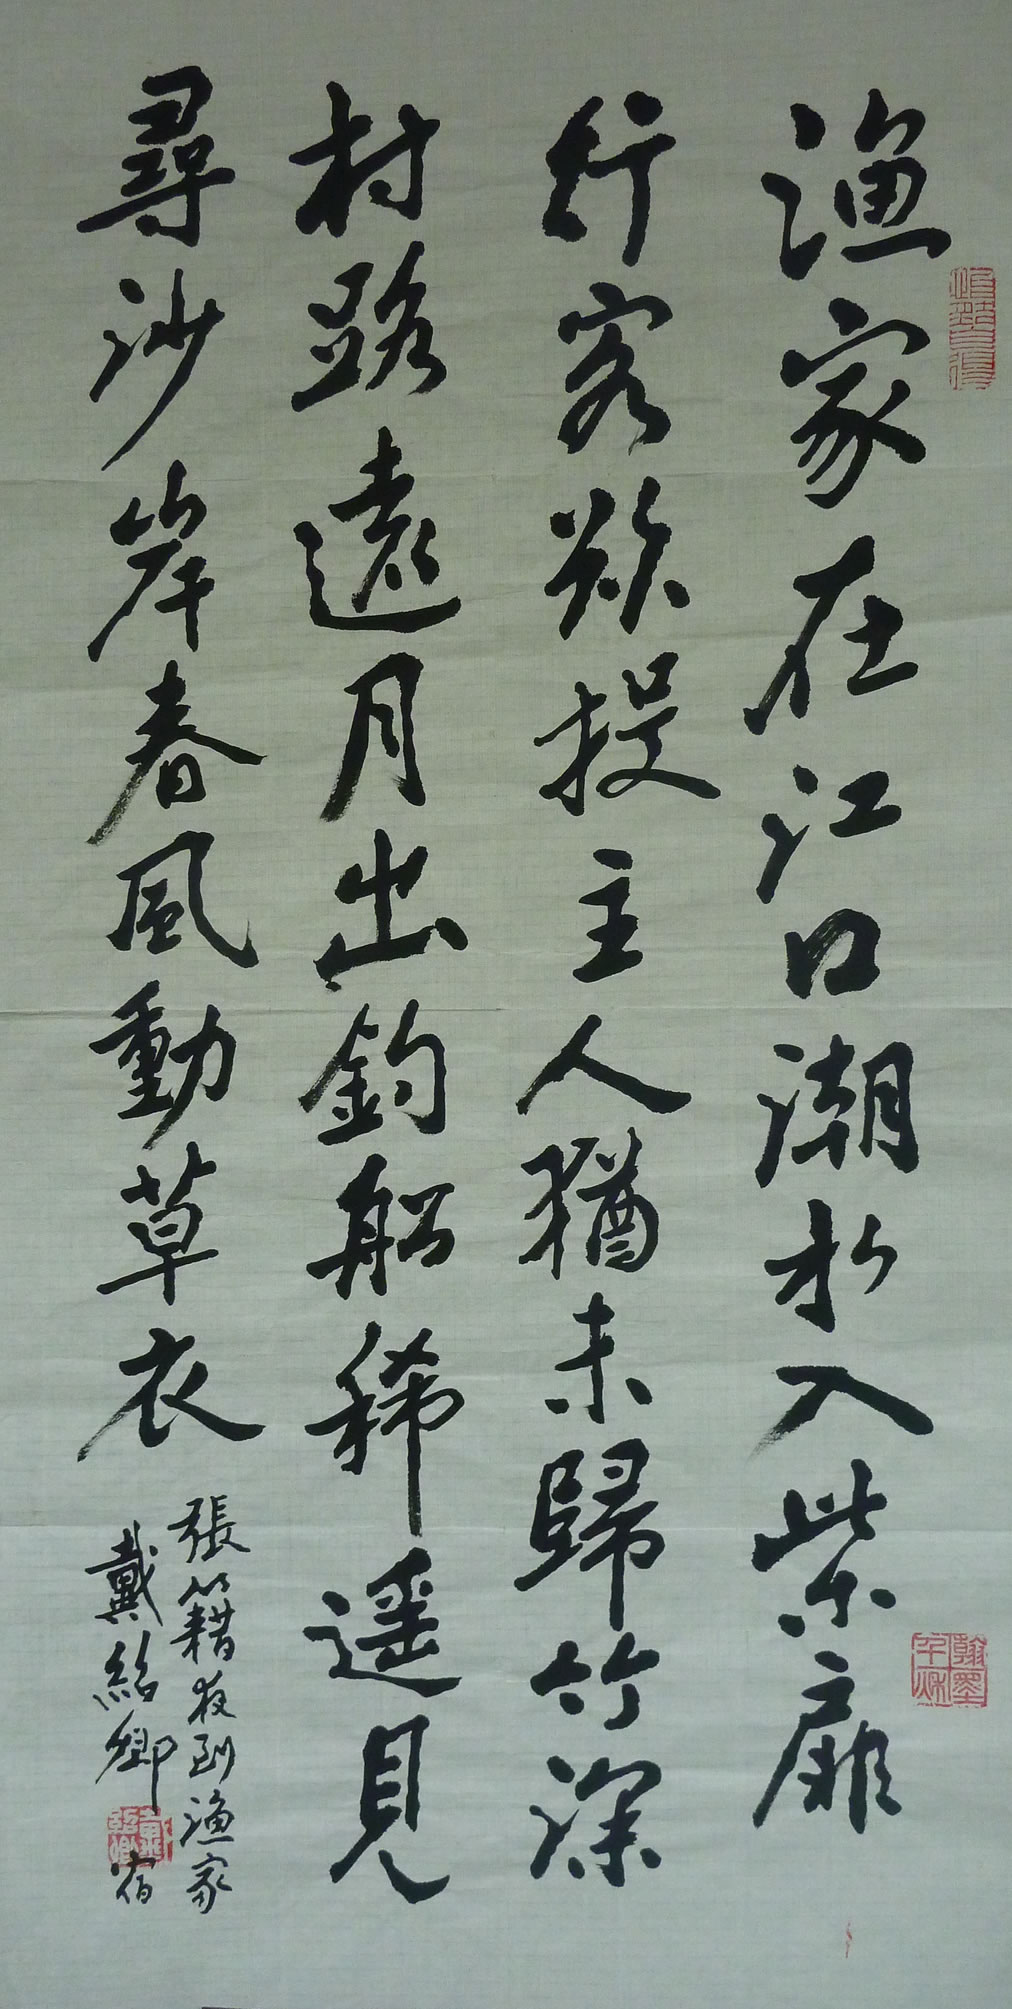 渔家在江口潮水入柴扉
行客欲投主人猶未歸竹深
村路遠月出釣船稀遥見
尋沙岸春風動草衣
張籍夜到渔家
戴紹卿
宿
翰墨千秋